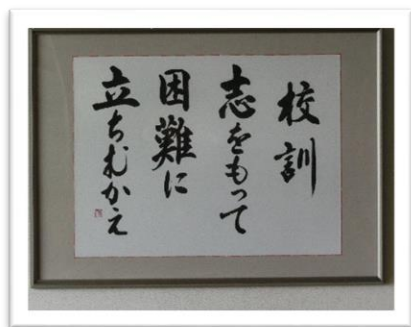 校訓
志をもって
困難に
立ちむかえ